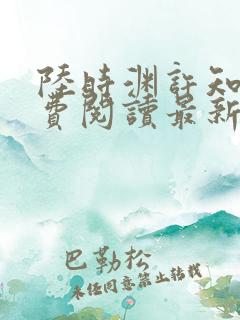 陸時渊許知
費閱讀最新
巴勒松
未经同意禁止转载